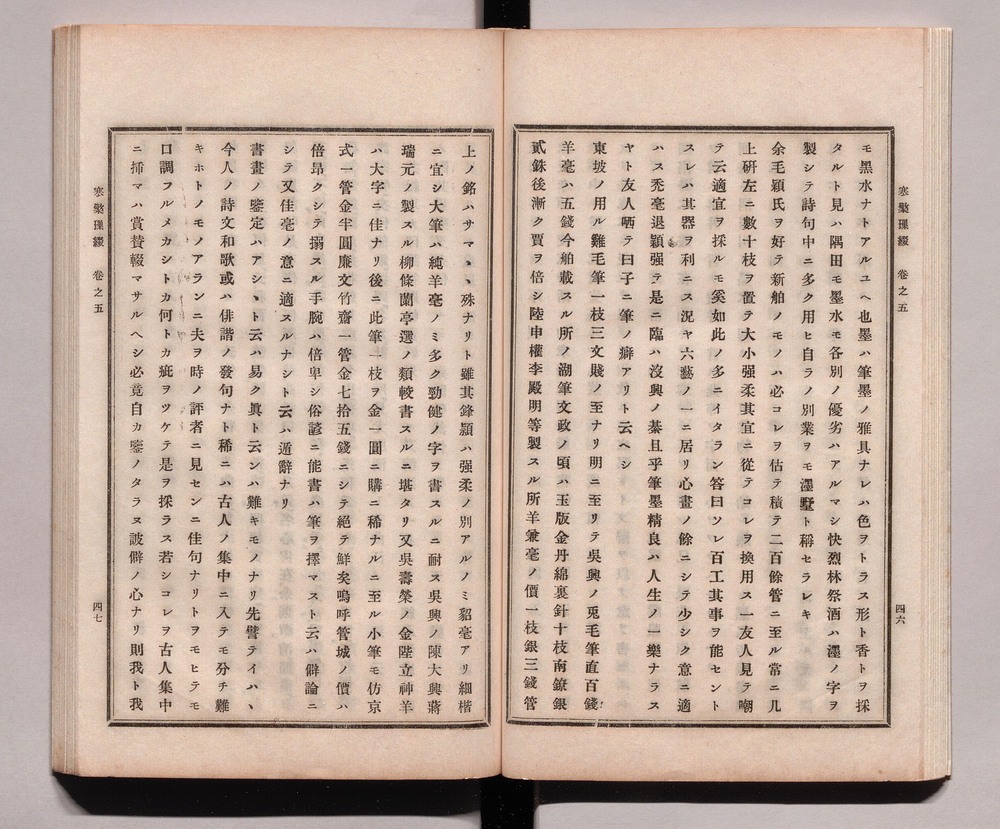 モ黑水ナトアルユヘ也墨ハ筆墨ノ雅具ナレハ色ヲトラス形ト香トヲ採
タルト見ハ隅田モ墨水モ各別ノ優劣ハアルマシ快烈林祭酒ハ濹ノ字ヲ
製シテ詩句中ニ多ク用ヒ自ラノ別業ヲモ濹墅ト稱セラレキ
余毛穎氏ヲ好テ新舶ノモノハ必コレヲ估テ積テ二百餘管ニ至ル常ニ几
上硏左ニ數十枝ヲ置テ大小强柔其宜ニ從テコレヲ換用ス一友人見テ嘲
テ云適宜ヲ採ルモ奚如此ノ多ニイタラン答曰ソレ百工其事ヲ能セント
スレハ其器ヲ利ニス況ヤ六藝ノ一ニ居リ心畫ノ餘ニシテ少シク意ニ適
ハス禿毫退穎强テ是ニ臨ハ沒興ノ綦且乎筆墨精良ハ人生ノ一樂ナラス
ヤト友人哂テ曰子ニ筆ノ癖アリト云ヘシ
東坡ノ用ル雞毛筆一枝三文賤ノ至ナリ明ニ至リテ吳興ノ兎毛筆直百錢
羊毫ハ五錢今舶載スル所ノ湖筆文政ノ頃ハ玉版金丹綿裏針十枝南鐐銀
貳銖後漸ク賈ヲ倍シ陸申權李殿明等製スル所羊兼毫ノ價一枝銀三錢管
寒檠璅綴 卷之五
四六
上ノ銘ハサマヽヽ殊ナリト雖其鋒穎ハ强柔ノ別アルノミ貂毫アリ細楷
ニ宜シ大筆ハ純羊毫ノミ多ク勁健ノ字ヲ書スルニ耐ス吳興ノ陳大興蔣
瑞元ノ製スル柳條蘭亭選ノ類帨書スルニ堪タリ又吳壽榮ノ金陛立神羊
ハ大字ニ佳ナリ後ニ此筆一枝ヲ金一圓ニ購ニ稀ナルニ至ル小筆モ仿京
式一管金半圓廉文竹齋一管金七拾五錢ニシテ絕テ鮮矣嗚呼管城ノ價ハ
倍昂クシテ搦スル手腕ハ倍卑シ俗諺ニ能書ハ筆ヲ擇マスト云ハ僻論ニ
シテ又佳毫ノ意ニ適スルナシト云ハ遁辭ナリ
書畫ノ鑒定ハアシヽト云ハ易ク眞ト云ンハ難キモノナリ先譬テイハヽ
今人ノ詩文和歌或ハ俳諧ノ發句ナト稀ニハ古人ノ集中ニ入テモ分チ難
キホトノモノアランニ夫ヲ時ノ評者ニ見センニ佳句ナリトヲモヒテモ
口調フルメカシトカ何トカ疵ヲツケテ是ヲ採ラス若シコレヲ古人集中
ニ揷マハ賞賛輟マサルヘシ必竟自カ鑒ノタラヌ詖僻ノ心ナリ則我ト我
寒檠璅綴 卷之五
四七